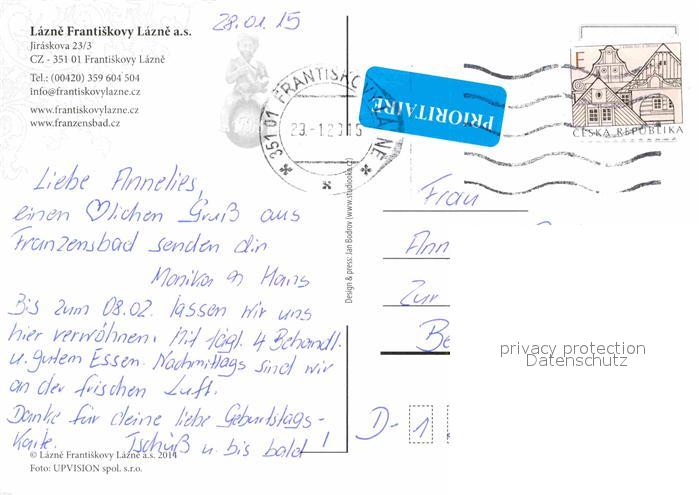 28.01.15
Lázně Františkovy Lázně a.s.
Jiráskova 23/3
CZ - 351 01 Františkovy Lázně
Tel.: (00420) 359 604 504
info@frantiskovylazne.cz
www.frantiskovylazne.cz
www.franzensbad.cz
351 01 FRANTIŠKOVY LÁZNĚ
PRIORITAIRE
E
ČESKÁ REPUBLIKA
Liebe Annelies,
einen ♡lichen Gruß aus
Franzensbad senden dir
Monika Hans
Bis zum 08.02. lassen wir uns
hier verwöhnen. Mit tägl. 4 Behandl.
u. gutem Essen. Nachmittags sind wir
an der frischen Luft.
Danke für deine liebe Geburtstags-
karte. Tschüß u. bis bald!
© Lázně Františkovy Lázně a.s. 2014
Foto: UPVISION spol. s.r.o.
Design & press: Jan Bodrov (www.studiookc.cz)
Frau
Ann
Zur
Be
D- 1
privacy protection
Datenschutz